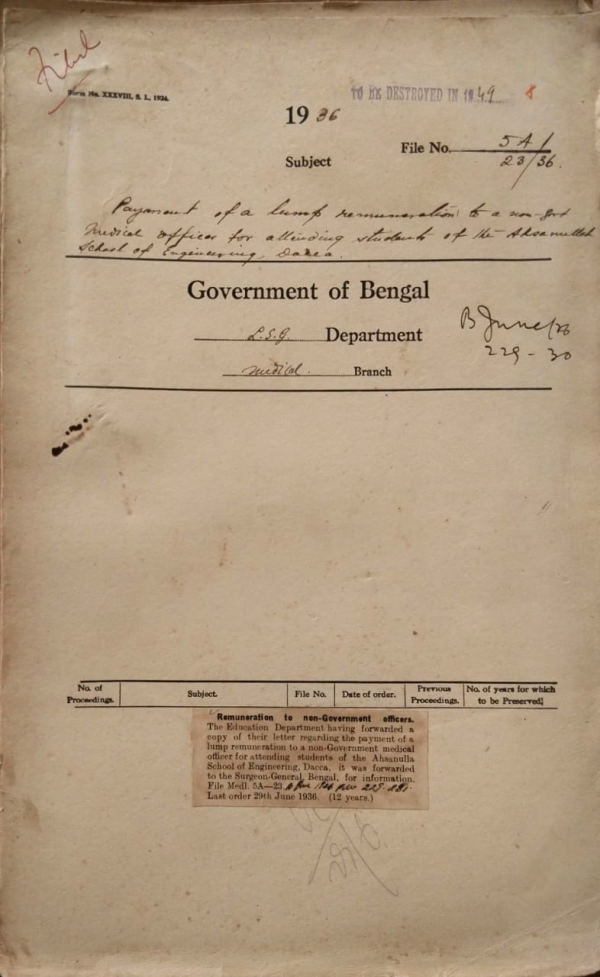 Form No. XXXVIII, S. L., 1934.
TO BE DESTROYED IN 1949 8
1936
File No. 5A/
23/36.
Subject
Payment of a lump remuneration to a non-govt
medical officer for attending students of the Ahsanullah
School of Engineering, Dacca.
Government of Bengal
L.S.G. Department
Medical Branch
B June/36
229-30
No. of Proceedings. Subject. File No. Date of order. Previous Proceedings. No. of years for which to be Preserved.
Remuneration to non-Government officers.
The Education Department having forwarded a
copy of their letter regarding the payment of a
lump remuneration to a non-Government medical
officer for attending students of the Ahsanulla
School of Engineering, Dacca, it was forwarded
to the Surgeon-General, Bengal, for information.
File Medl. 5A—23
Last order 29th June 1936. (12 years.)